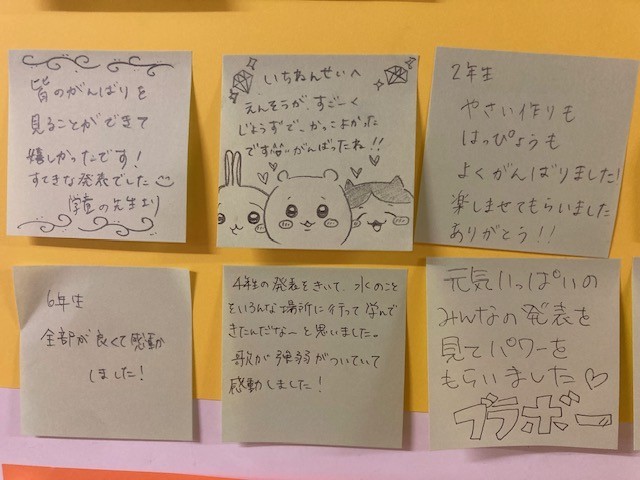 皆のがんばりを
見ることができて
嬉しかったです!
すてきな発表でした
学童の先生より
いちねんせいへ
えんそうが、すごーく
じょうずで、かっこよかった
です がんばったね!!
2年生
やさい作りも
はっぴょうも
よくがんばりました!
楽しませてもらいました
ありがとう!!
6年生
全部が良くて感動
しました!
4年生の発表をきいて、水のこと
をいろんな場所に行って学んで
きたんだな〜と思いました。
歌が強弱がついていて
感動しました!
元気いっぱいの
みんなの発表を
見てパワーを
もらいました♡
ブラボー